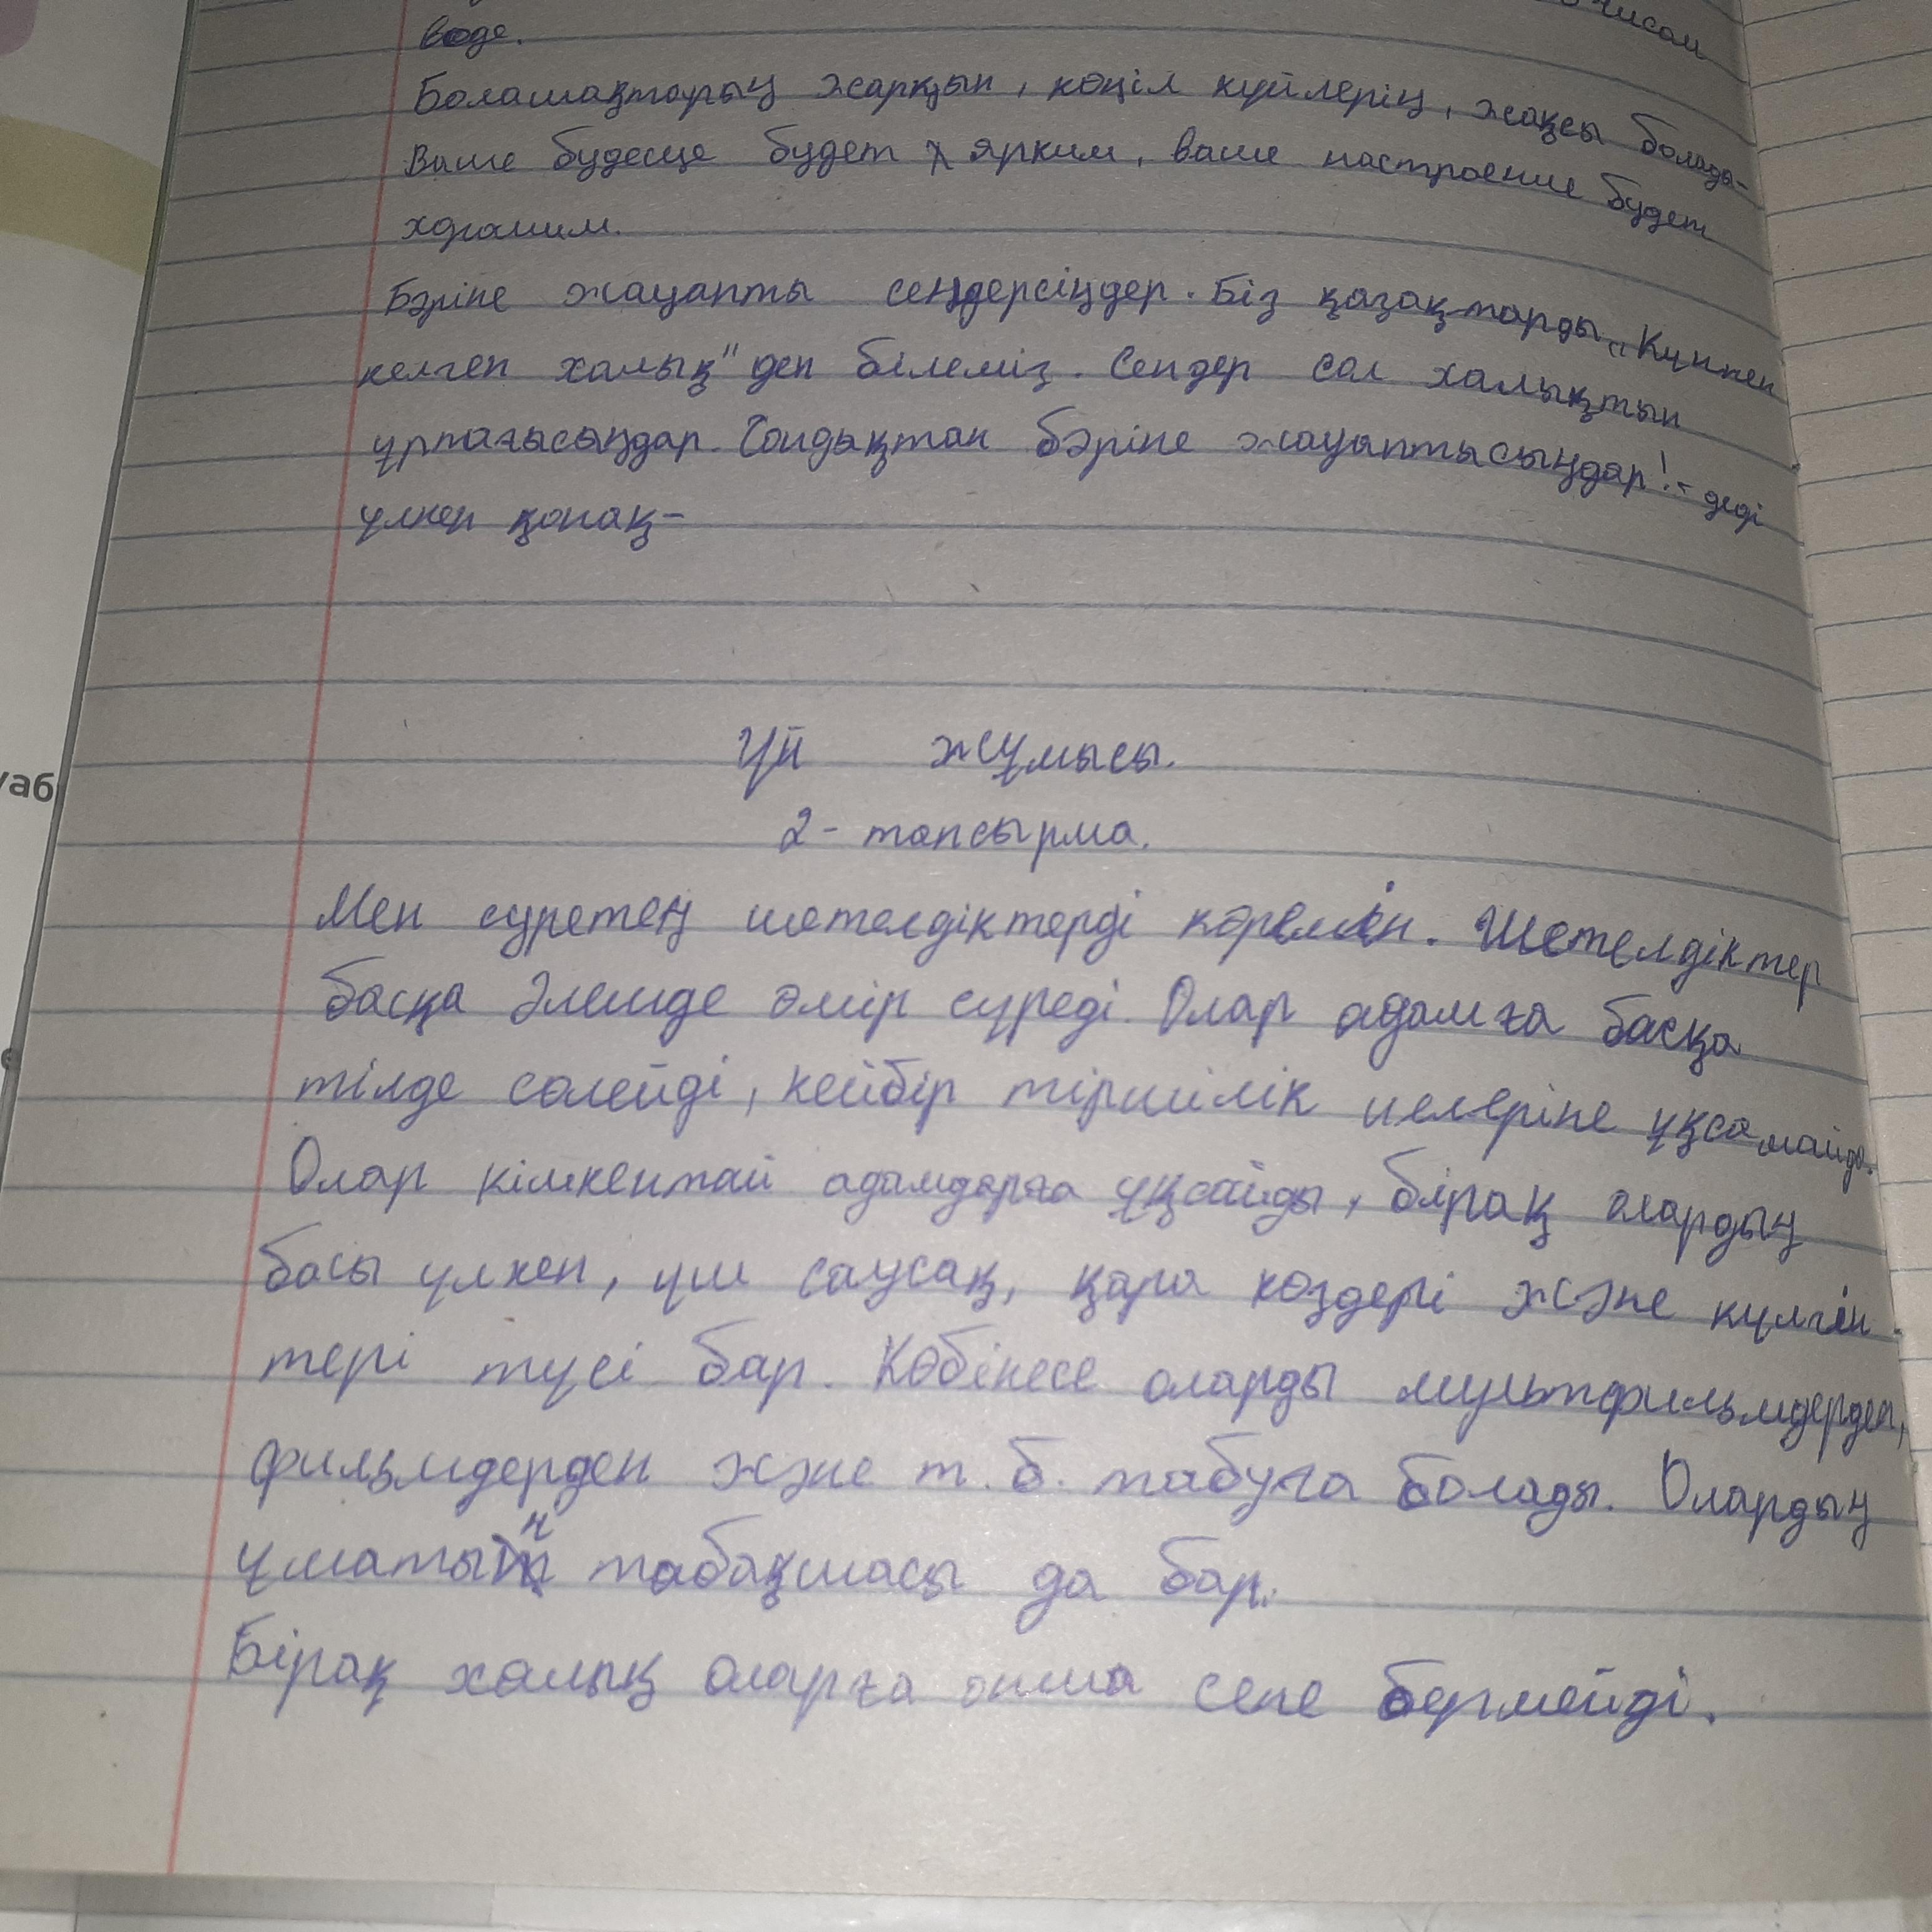 чисам
воде.
Болашақтарың жарқын, көңіл күйлерің, жақсы болады-
Ваше будесще будет ярким, ваше настроение будет
хорошим.
Бәріне жауапты сеңдерсіңдер. Біз қазақтарды „Күннен
келген халық" деп білеміз. Сендер сол халықтын
ұрпағысыңдар. Сондықтан бәріне жауаптысыңдар! - деді
үлкен қонақ-
Үй жұмысы.
2-тапсырма.
Мен суретең шетелдіктерді көремін. Шетелдіктер
басқа әлемде өмір сүреді. Олар адамға басқа
тілде сөлейді, кейбір тіршілік иелеріне ұқсамайды.
Олар кімкентай адамдарға ұқсайды, бірақ олардың
басы үлкен, үш саусақ, қара көздері және күлгін
тері түсі бар. Көбінесе оларды мультфильмдерден,
фильмдерден және т.б. табуға болады. Олардың
ұшатын табақшасы да бар.
Бірақ халық оларға онша сене бермейді.
уаб